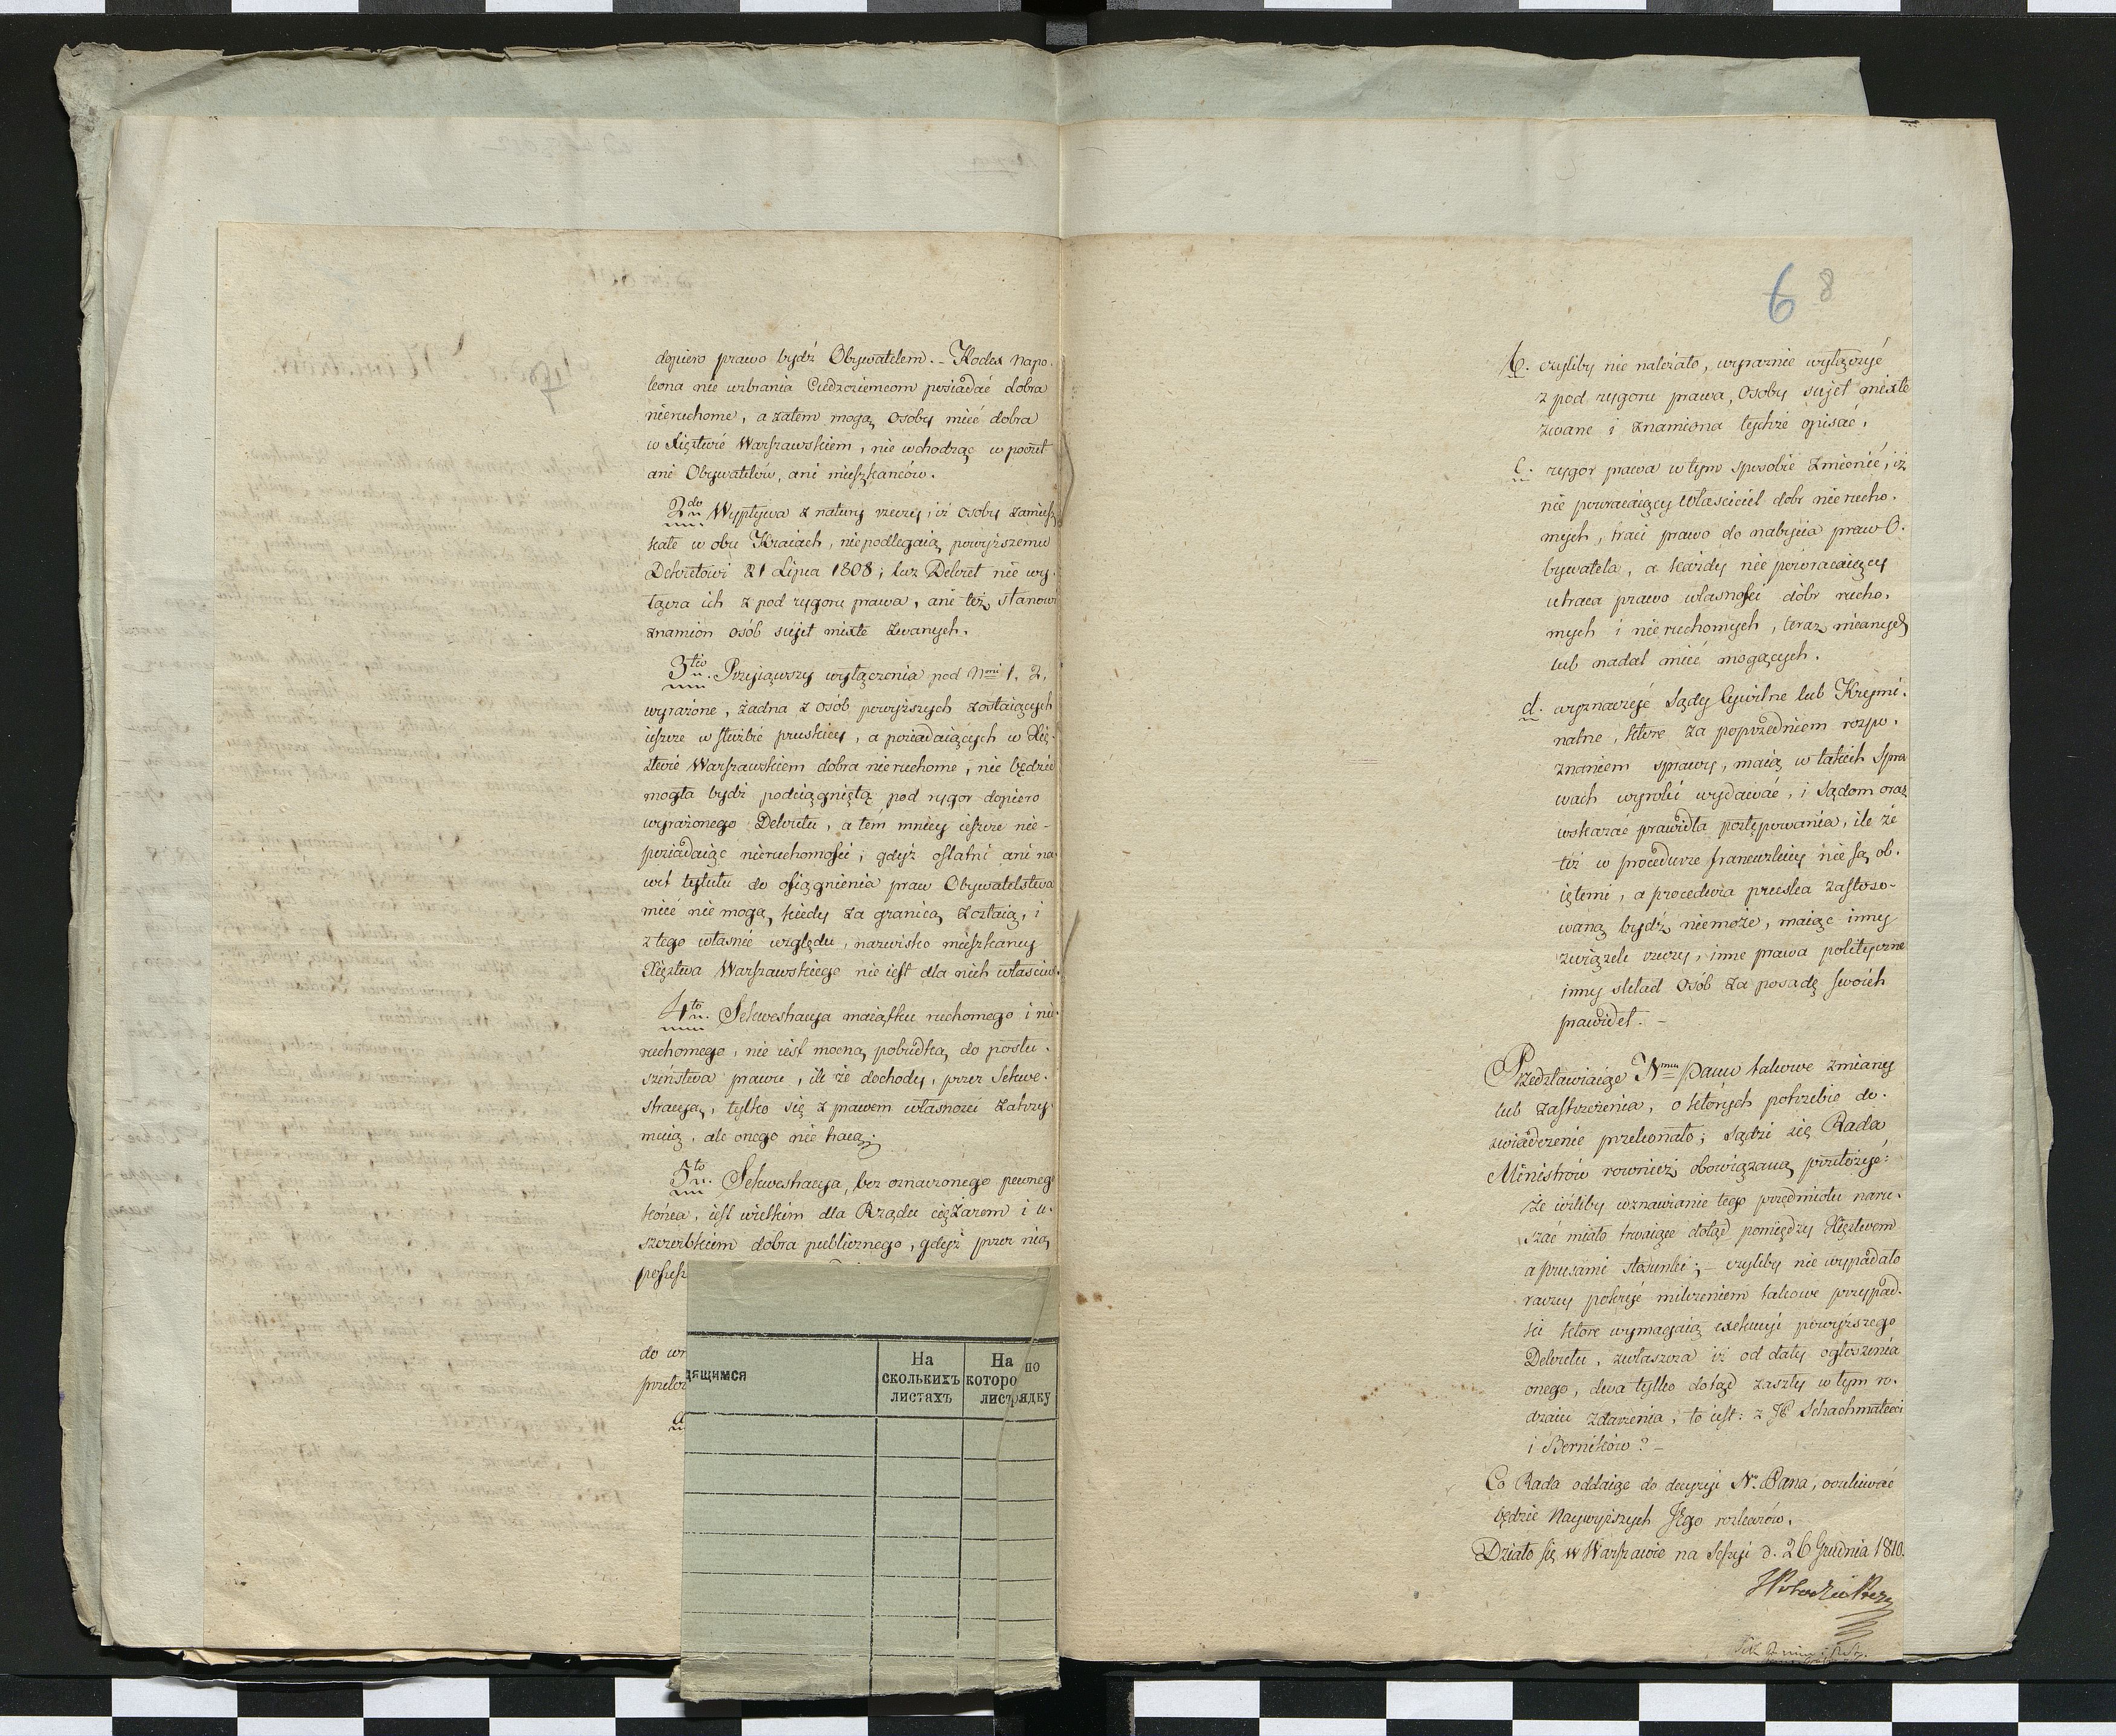 dopiero prawo bydź Obywatelem. - Kodex Napo-
leona nie wzbrania Cudzoziemcom posiadać dobra
nieruchome, a zatem mogą osoby mieć dobra
w Xięztwie Warszawskiem, nie wchodząc w poczet
ani Obywatelów, ani mieszkańców.
2do Wypływa z natury rzeczy, iż osoby zamiesz
kałe w obu Kraiach, niepodlegaią powyższemu
Dekretowi 21 Lipca 1808; lecz Dekret nie wy-
łącza ich z pod rygoru prawa, ani też stanowi
znamion osób sujet mixte zwanych.
3tio Przyiąwszy wyłączenia pod Nrmi 1, 2,
wyrażone, żadna z osób powyższych zostaiących
ieszcze w służbie pruskiey, a posiadaiących w Xię-
ztwie Warszawskiem dobra nieruchome, nie będzie
mogła bydź podciągniętą pod rygor dopiero
wyrażonego Dekretu, a tem mniey ieszcze nie-
posiadaiąc nieruchomości; gdyż ostatni ani na-
wet tytułu do osiągnienia praw Obywatelstwa
mieć nie mogą, kiedy za granicą zostaią, i
z tego własnie względu, nazwisko mieszkańcy
Xięztwa Warszawskiego nie iest dla nich właściwe.
4to Sekwestracya maiątku ruchomego i nie-
ruchomego, nie iest mocną pobudką do posłu-
szeństwa prawu, ile że dochody, przez Sekwe-
stracyą, tylko się z prawem własności zatrzy-
muią, ale onego nie tracą.
5to Sekwestracya, bez oznaczonego pewnego
końca, iest wielkim dla Rządu ciężarem i u-
szczerbkiem dobra publicznego, gdyż przez nią
do
przeło
a
дящимся
На сколькихъ листахъ
На которо лист
по рядку
6 8
b. czyliby nie należało, wyraźnie wyłączyć
z pod rygoru prawa, Osoby sujet mixte
zwane i znamiona tychże opisać,
c. rygor prawa w tym sposobie zmienić, iż
nie powracaiący Właściciel dobr nierucho-
mych, traci prawo do nabycia praw O-
bywatela, a każdy nie powracaiący
utraca prawo własności dóbr rucho-
mych i nieruchomych, teraz mianych
lub nadal mieć mogących.
d. wyznaczyć Sądy Cywilne lub Krymi-
nalne, które za poprzedniem rozpo-
znaniem sprawy, maią w takich Spra
wach wyroki wydawać, i Sądom oraz
wskazać prawidła postępowania, ile że
też w procedurze francuzkiey nie są ob-
iętemi, a procedura pruska zastoso-
waną bydź niemoże, maiąc inny
związek rzeczy, inne prawa polityczne
inny skład Osób za posadę swoich
prawideł. -
Przedstawiaiąc Nmu Panu takowe zmiany
lub zastrzeżenia, o których potrzebie do-
świadczenie przekonało; sądzi się Rada
Ministrów również obowiązaną przełożyć:
że ieżeliby wznawianie tego przedmiotu naru-
szać miało trwaiące dotąd pomiędzy Xięztwem
a Prusami stosunki; - czyliby nie wypadało
raczey pokryć milczeniem takowe przypad-
ki które wymagaią exekucyi powyższego
Dekretu, zwłaszcza iż od daty ogłoszenia
onego, dwa tylko dotąd zaszły w tym ro-
dzaiu zdarzenia, to iest: z JP Schachmateci
i Berników? -
Co Rada oddaiąc do decyzyi N. Pana, oczekiwać
będzie Naywyższych Jego rozkazów.
Działo się w Warszawie na Sessyi d. 26 Grudnia 1810.